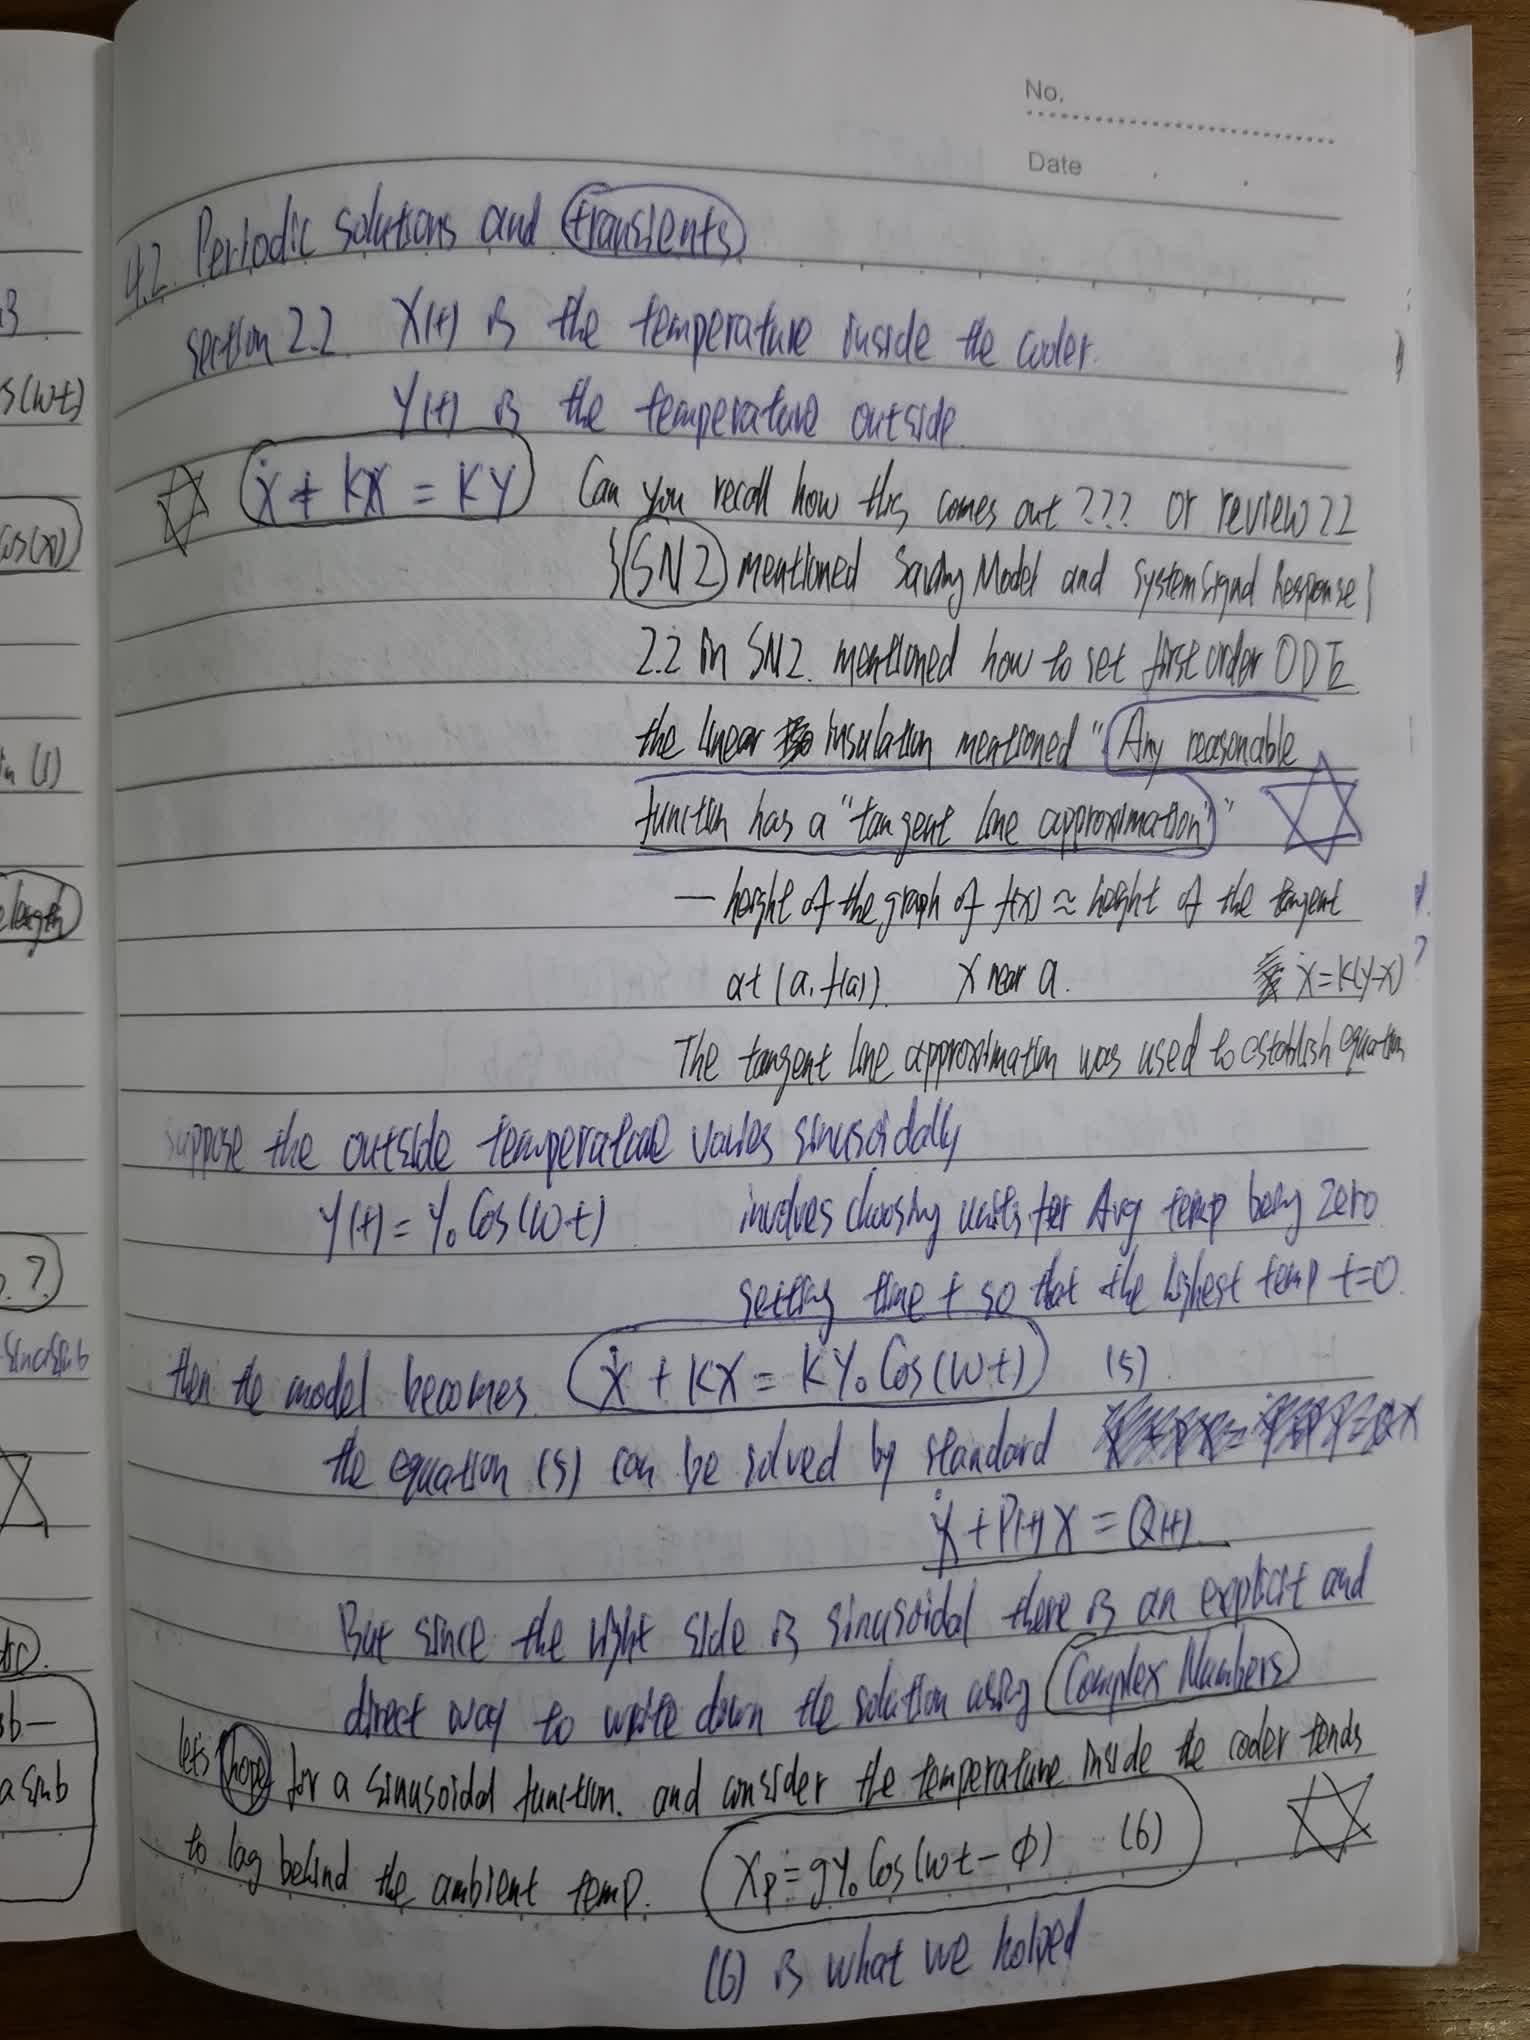 No.
Date
4.2. Periodic solutions and transients
section 2.2. X(t) is the temperature inside the cooler.
Y(t) is the temperature outside.
ẋ + kx = ky Can you recall how this comes out??? or review 2.2
{SN2 mentioned Saving Model and System Signal Response
2.2 in SN2. mentioned how to set first order ODE
the linear insulation mentioned "Any reasonable
function has a "tangent line approximation""
— height of the graph of f(x) ≈ height of the tangent
at (a, f(a)). x near a. ẋ=k(y-x)?
The tangent line approximation was used to establish equation
suppose the outside temperature varies sinusoidally
y(t) = y₀ cos(ωt) involves choosing units for Avg temp being zero
setting time t so that the highest temp t=0.
then the model becomes. ẋ + kx = ky₀ cos(ωt) (5).
the equation (5) can be solved by standard
ẋ + P(t)x = Q(t).
But since the right side is sinusoidal there is an explicit and
direct way to write down the solution using Complex Numbers
let's hope for a sinusoidal function. and consider the temperature inside the cooler tends
to lag behind the ambient temp. xₚ = gy₀ cos(ωt - ϕ) (6)
(6) is what we hoped
s(ωt)
cos(x)
(1)
length
?
-sinasinb
b —
a sinb